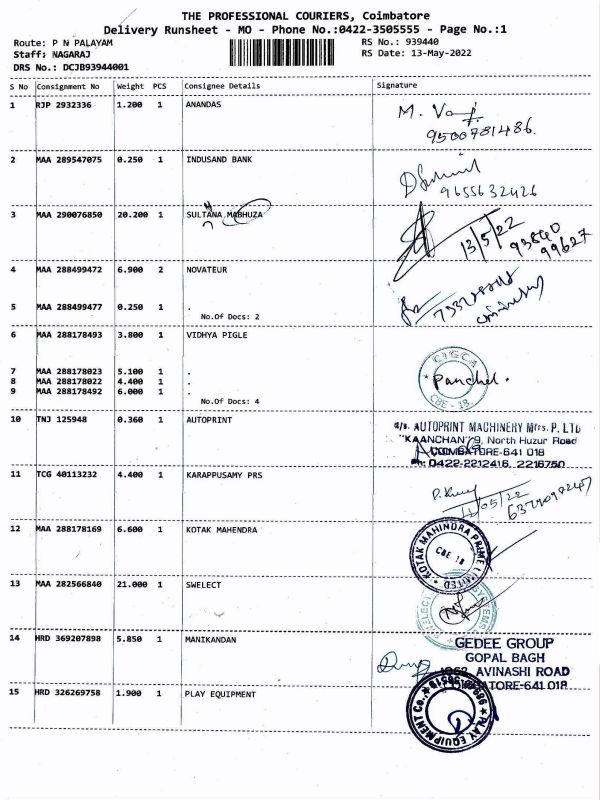 THE PROFESSIONAL COURIERS, Coimbatore
Delivery Runsheet - MO - Phone No.:0422-3505555 - Page No.:1
Route: P N PALAYAM RS No.: 939440
Staff: NAGARAJ RS Date: 13-May-2022
DRS No.: DCJB93944001
S No Consignment No Weight PCS Consignee Details Signature
1 RJP 2932336 1.200 1 ANANDAS
9500781486.
2 MAA 289547075 0.250 1 INDUSAND BANK
9655632426
3 MAA 290076850 20.200 1 SULTANA MABHUZA
13/5/22
93840
99627
4 MAA 288499472 6.900 2 NOVATEUR
5 MAA 288499477 0.250 1 .
No.Of Docs: 2
6 MAA 288178493 3.800 1 VIDHYA PIGLE
CIGCA
Panchel.
CBE - 18.
7 MAA 288178023 5.100 1 .
8 MAA 288178022 4.400 1 .
9 MAA 288178492 6.000 1 .
No.Of Docs: 4
10 TNJ 125948 0.360 1 AUTOPRINT
AUTOPRINT MACHINERY Mfrs. P. LTD
"KAANCHAN" 9, North Huzur Road
COIMBATORE-641 018
Ph: 0422-2212416, 2216750
11 TCG 40113232 4.400 1 KARAPPUSAMY PRS
12 MAA 288178169 6.600 1 KOTAK MAHENDRA
KOTAK MAHINDRA PRIME LIMITED
CBE 18
13 MAA 282566840 21.000 1 SWELECT
14 HRD 369207898 5.850 1 MANIKANDAN
GEDEE GROUP
GOPAL BAGH
AVINASHI ROAD
COIMBATORE-641 018
15 HRD 326269758 1.900 1 PLAY EQUIPMENT
PLAY EQUIPMENT Co.,